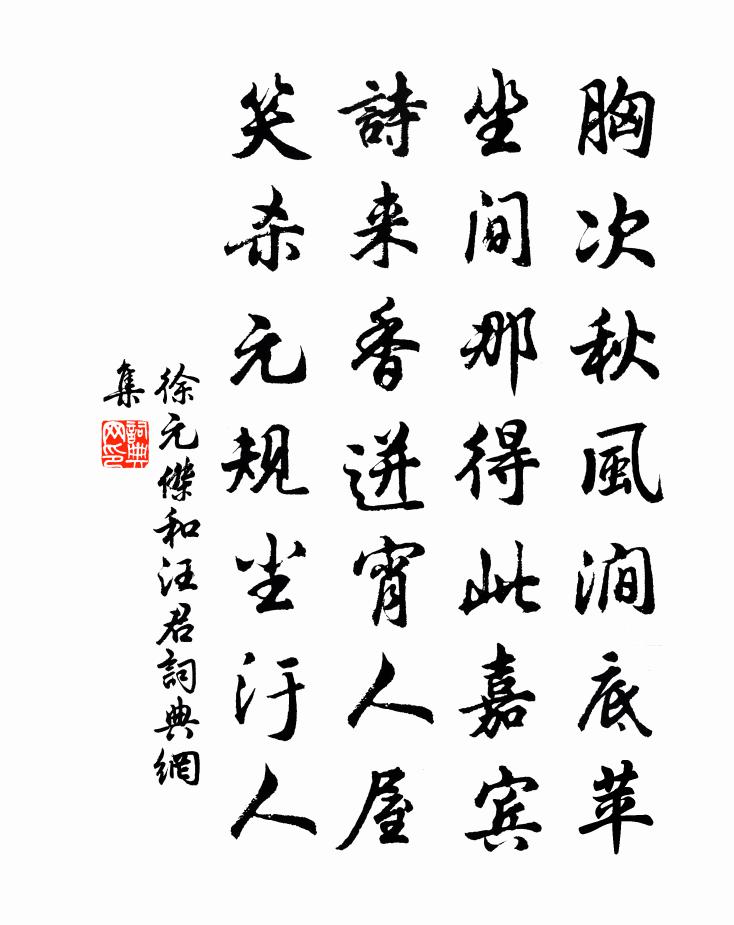 胸次秋風澗底苹
坐间那得此嘉宾
詩来香迸宵人屋
笑杀元规尘汙人
徐元傑和汪君詞典網
集
詞典
网印